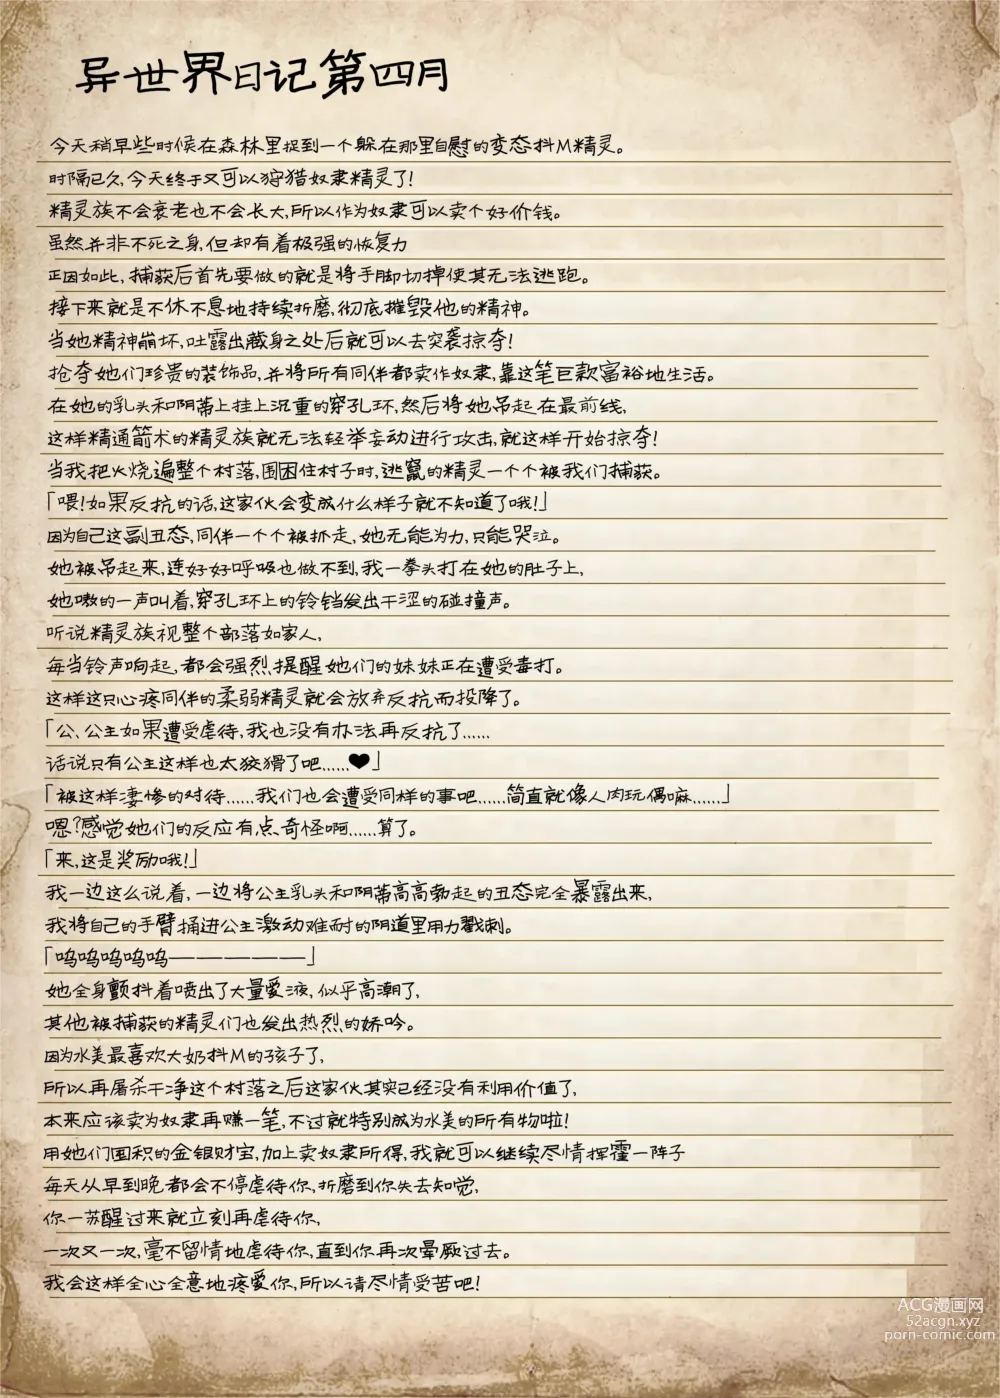 异世界日记第四月
今天稍早些时候在森林里捉到一个躲在那里自慰的变态抖M精灵。
时隔已久,今天终于又可以狩猎奴隶精灵了!
精灵族不会衰老也不会长大,所以作为奴隶可以卖个好价钱。
虽然并非不死之身,但却有着极强的恢复力
正因如此,捕获后首先要做的就是将手脚切掉使其无法逃跑。
接下来就是不休不息地持续折磨,彻底摧毁他的精神。
当她精神崩坏,吐露出藏身之处后就可以去突袭掠夺!
抢夺她们珍贵的装饰品,并将所有同伴都卖作奴隶,靠这笔巨款富裕地生活。
在她的乳头和阴蒂上挂上沉重的穿孔环,然后将她吊起在最前线,
这样精通箭术的精灵族就无法轻举妄动进行攻击,就这样开始掠夺!
当我把火烧遍整个村落,围困住村子时,逃窜的精灵一个个被我们捕获。
「喂!如果反抗的话,这家伙会变成什么样子就不知道了哦!」
因为自己这副丑态,同伴一个个被抓走,她无能为力,只能哭泣。
她被吊起来,连好好呼吸也做不到,我一拳头打在她的肚子上,
她嗷的一声叫着,穿孔环上的铃铛发出干涩的碰撞声。
听说精灵族视整个部落如家人,
每当铃声响起,都会强烈提醒她们的妹妹正在遭受毒打。
这样这只心疼同伴的柔弱精灵就会放弃反抗而投降了。
「公、公主如果遭受虐待,我也没有办法再反抗了……
话说只有公主这样也太狡猾了吧……❤」
「被这样凄惨的对待……我们也会遭受同样的事吧……简直就像人肉玩偶嘛……」
嗯?感觉她们的反应有点奇怪啊……算了。
「来,这是奖励哦!」
我一边这么说着,一边将公主乳头和阴蒂高高勃起的丑态完全暴露出来,
我将自己的手臂捅进公主激动难耐的阴道里用力戳刺。
「呜呜呜呜呜—————」
她全身颤抖着喷出了大量爱液,似乎高潮了,
其他被捕获的精灵们也发出热烈的娇吟。
因为水美最喜欢大奶抖M的孩子了,
所以再屠杀干净这个村落之后这家伙其实已经没有利用价值了,
本来应该卖为奴隶再赚一笔,不过就特别成为水美的所有物啦!
用她们囤积的金银财宝,加上卖奴隶所得,我就可以继续尽情挥霍一阵子
每天从早到晚都会不停虐待你,折磨到你失去知觉,
你一苏醒过来就立刻再虐待你,
一次又一次,毫不留情地虐待你,直到你再次晕厥过去。
我会这样全心全意地疼爱你,所以请尽情受苦吧!
ACG漫画网
52acgn.xyz
porn-comic.com